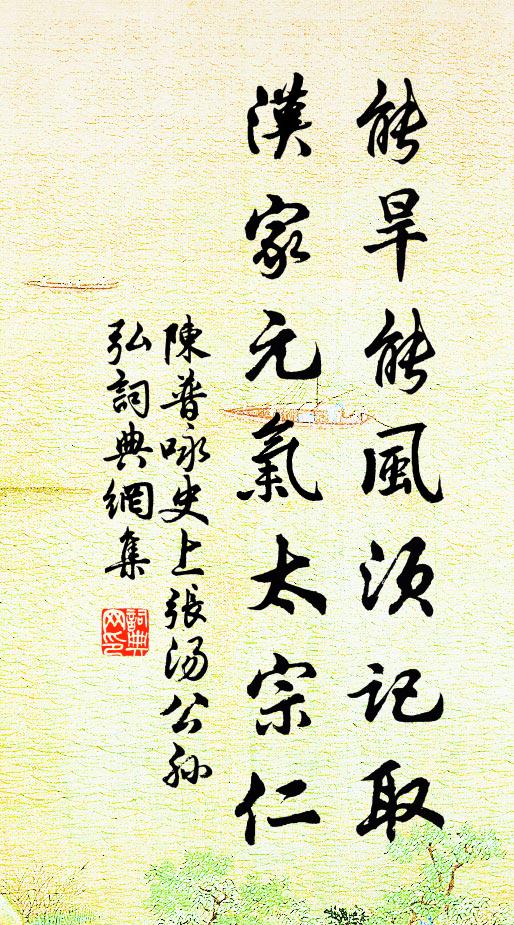 能旱能風須記取
漢家元氣太宗仁
陳普咏史上張湯公孫
弘詞典網集
詞典网印